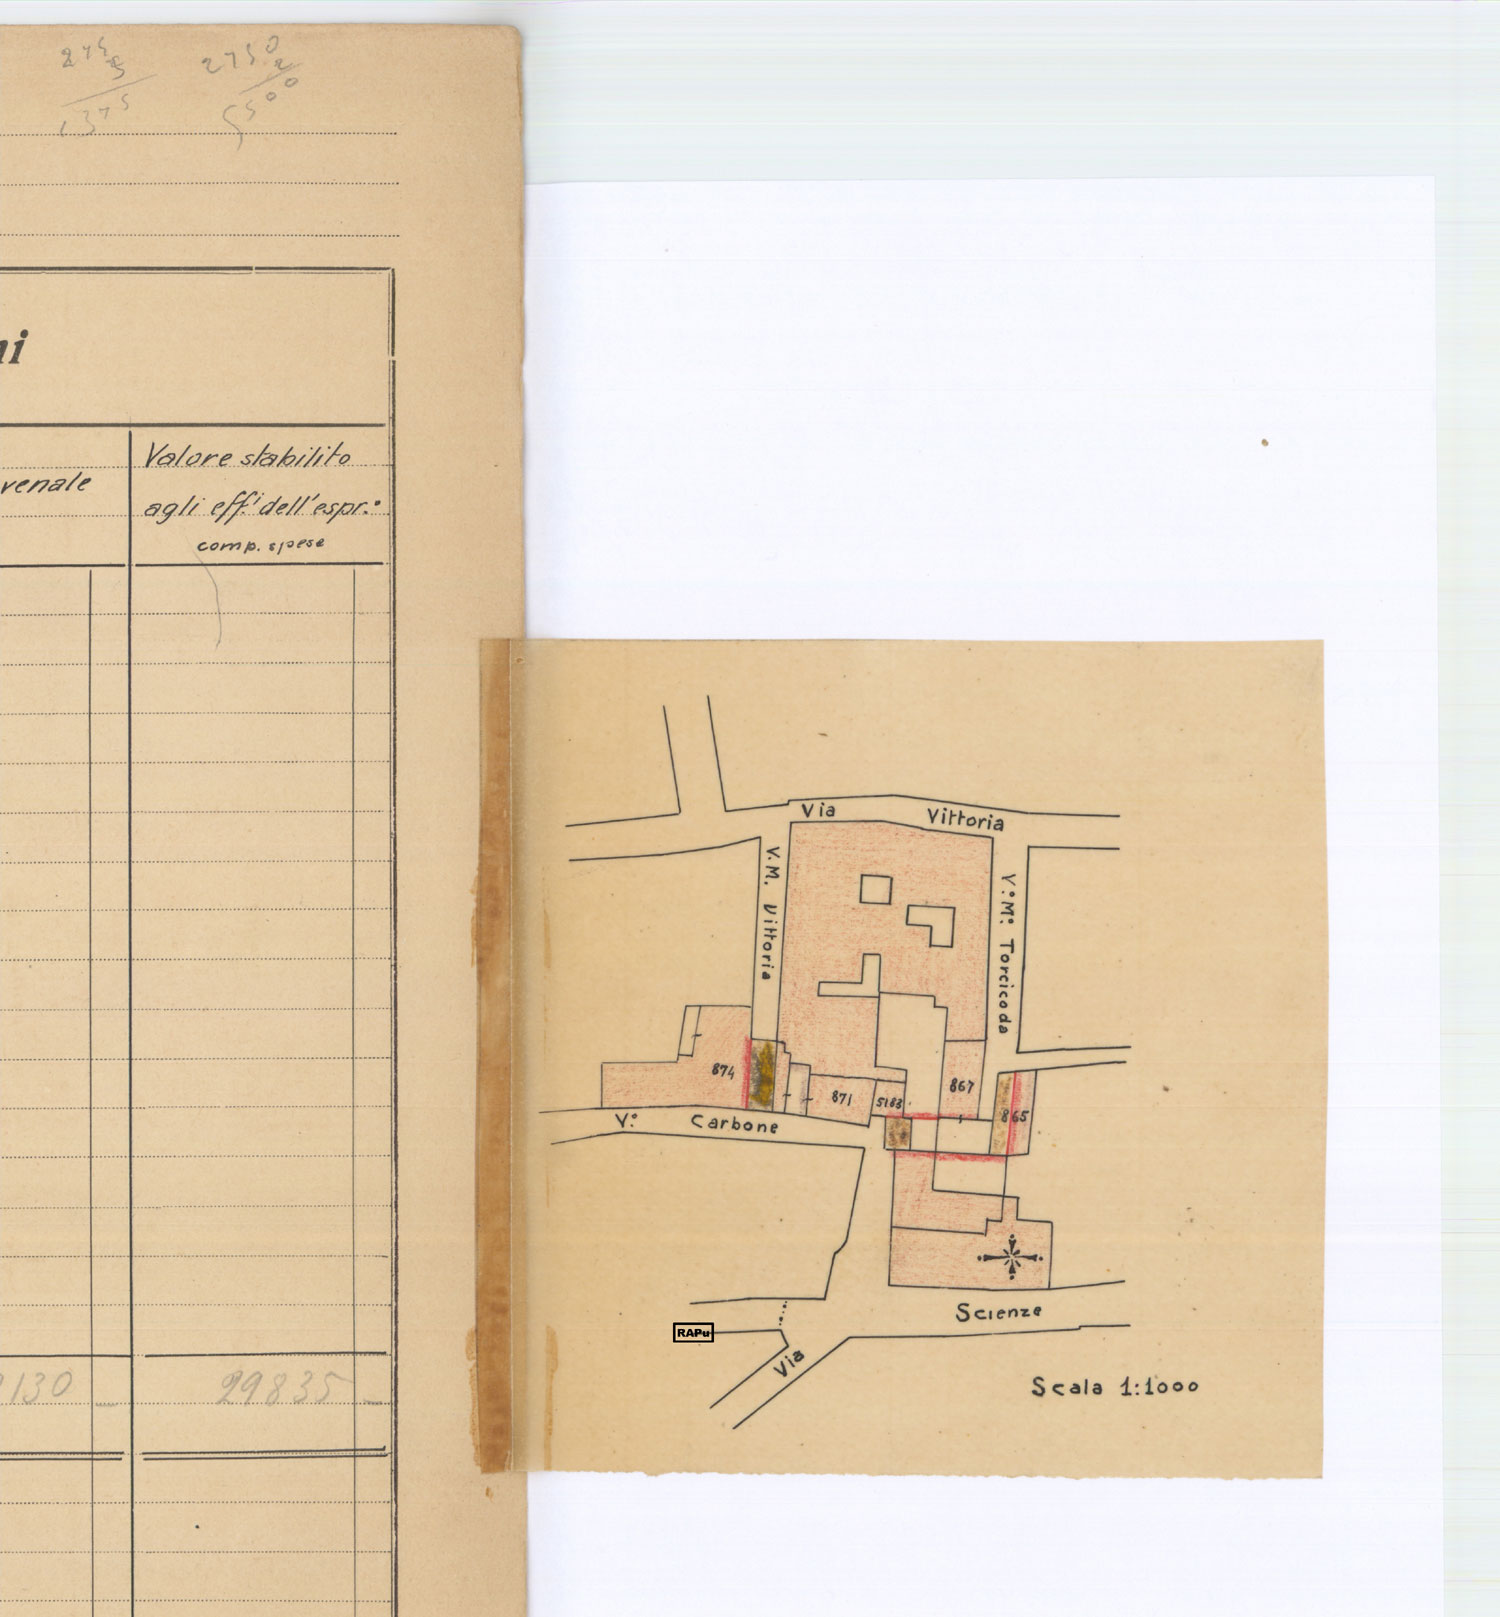 275
5
1375
2750
2
5500
ni
venale
Valore stabilito
agli eff.i dell'espr.e
comp. spese
130
29835
Via Vittoria
V. M. Vittoria
V.o M.o Torcicoda
874
871
5183
867
865
V.o Carbone
Scienze
RAPu
Via
Scala 1:1000